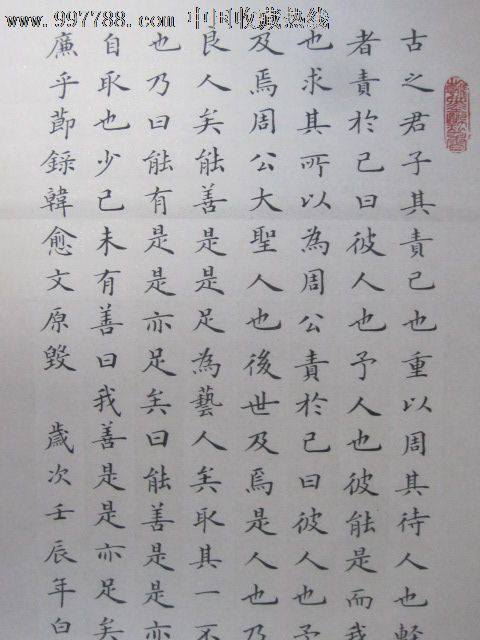 www.997788.com 中国收藏热线
古之君子其責己也重以周其待人也輕
者責於己曰彼人也予人也彼能是而我
也求其所以為周公責於己曰彼人也予
及焉周公大聖人也後世及焉是人也乃
良人矣能善是是足為藝人矣取其一不
也乃曰能有是是亦足矣曰能善是是亦
自取也少己未有善曰我善是是亦足矣
廉乎節錄韓愈文原毀 歲次壬辰年白